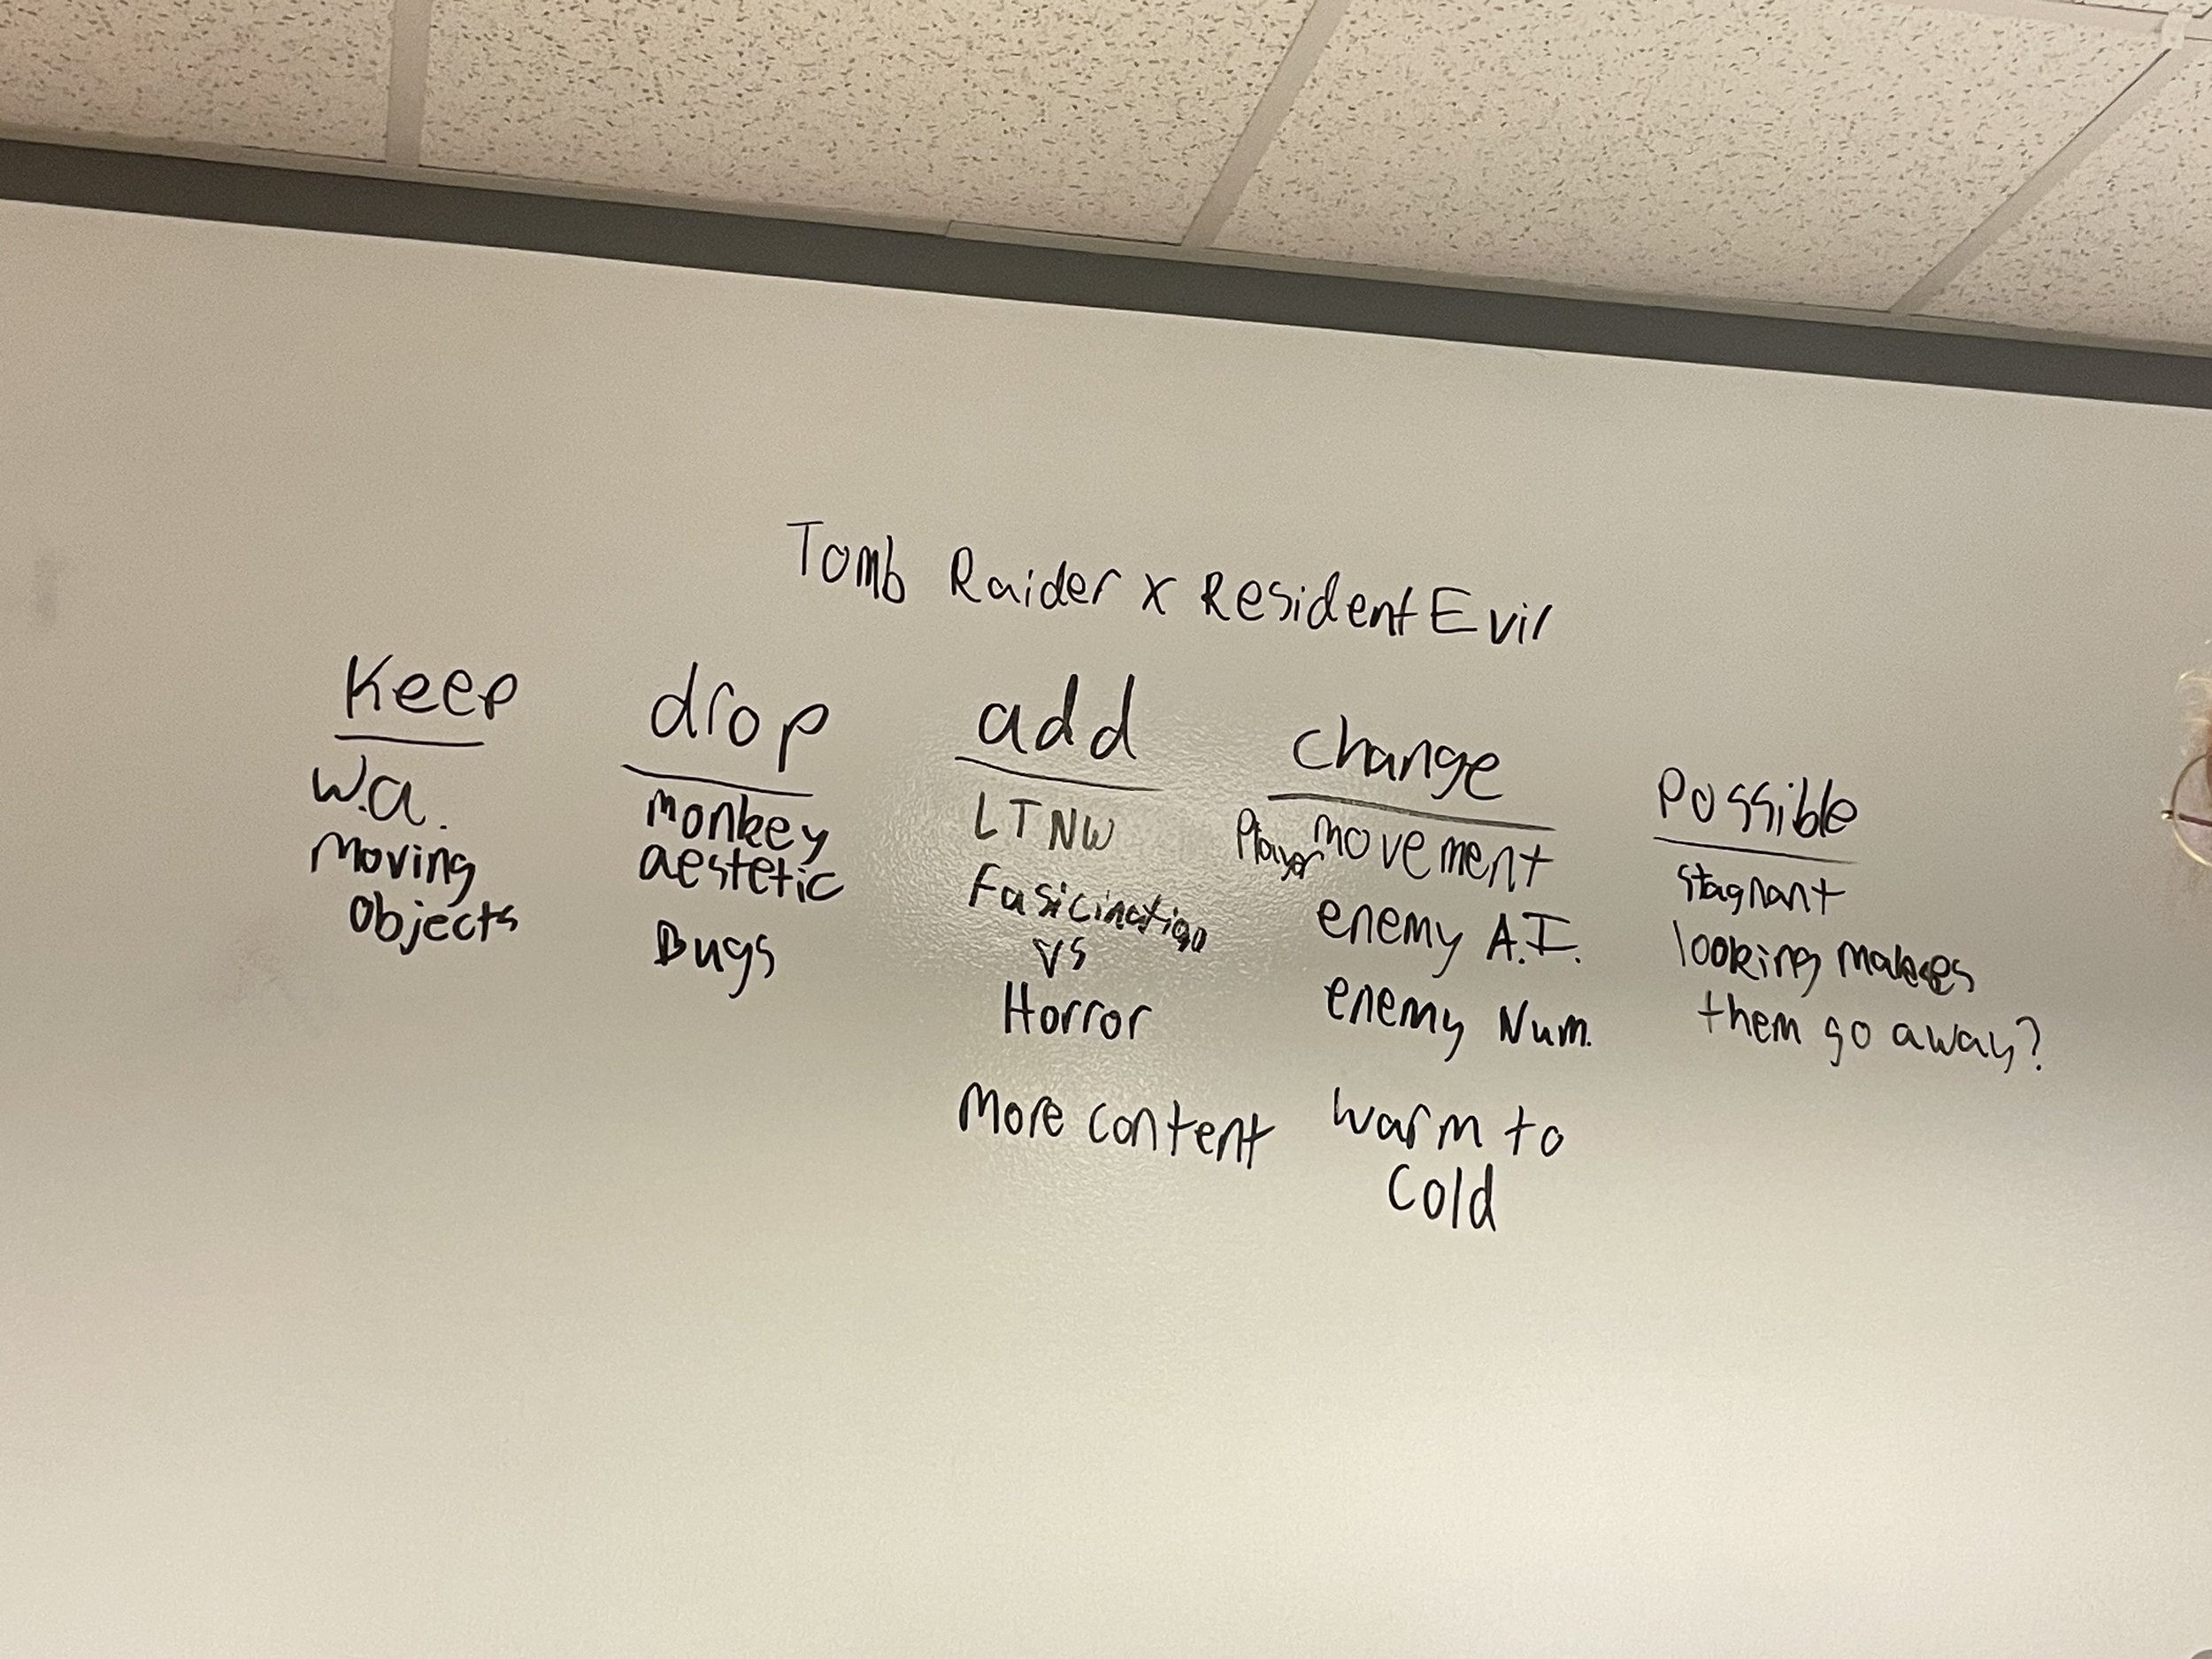 Tomb Raider x Resident Evil
Keep
W.a.
Moving
Objects
drop
monkey
aestetic
Bugs
add
LTNW
Fasicination
vs
Horror
More content
change
Player movement
enemy A.I.
enemy Num.
warm to
cold
Possible
stagnant
looking makes
them go away?